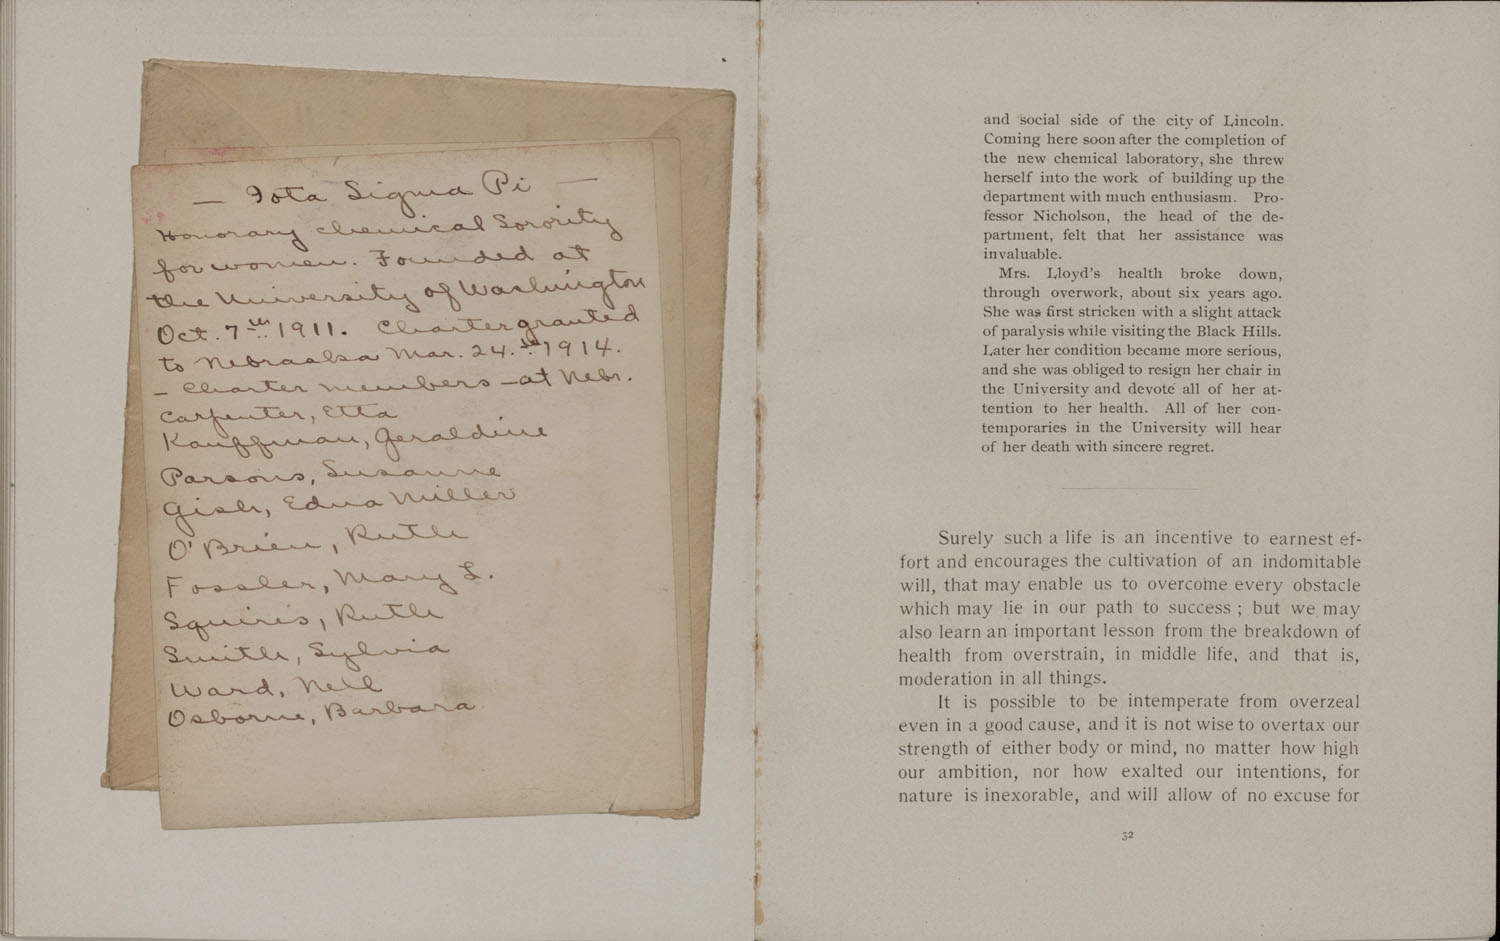 — Iota Sigma Pi —
Honorary chemical Sorority
for women. Founded at
the University of Washington
Oct. 7th 1911. Charter granted
to Nebraska Mar. 24.th 1914.
— Charter members — at Nebr.
Carpenter, Etta
Kauffman, Geraldine
Parsons, Susanne
Gish, Edna Miller
O'Brien, Ruth
Fossler, Mary L.
Squires, Ruth
Smith, Sylvia
Ward, Nell
Osborne, Barbara
and social side of the city of Lincoln.
Coming here soon after the completion of
the new chemical laboratory, she threw
herself into the work of building up the
department with much enthusiasm. Pro-
fessor Nicholson, the head of the de-
partment, felt that her assistance was
invaluable.
Mrs. Lloyd's health broke down,
through overwork, about six years ago.
She was first stricken with a slight attack
of paralysis while visiting the Black Hills.
Later her condition became more serious,
and she was obliged to resign her chair in
the University and devote all of her at-
tention to her health. All of her con-
temporaries in the University will hear
of her death with sincere regret.
Surely such a life is an incentive to earnest ef-
fort and encourages the cultivation of an indomitable
will, that may enable us to overcome every obstacle
which may lie in our path to success ; but we may
also learn an important lesson from the breakdown of
health from overstrain, in middle life, and that is,
moderation in all things.
It is possible to be intemperate from overzeal
even in a good cause, and it is not wise to overtax our
strength of either body or mind, no matter how high
our ambition, nor how exalted our intentions, for
nature is inexorable, and will allow of no excuse for
32